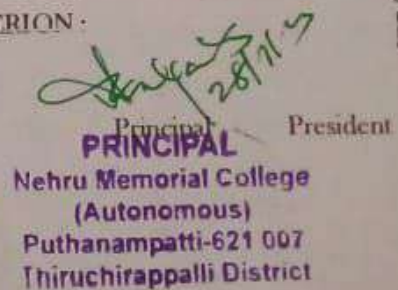 ERION :
Principal President
PRINCIPAL
Nehru Memorial College
(Autonomous)
Puthanampatti-621 007
Thiruchirappalli District